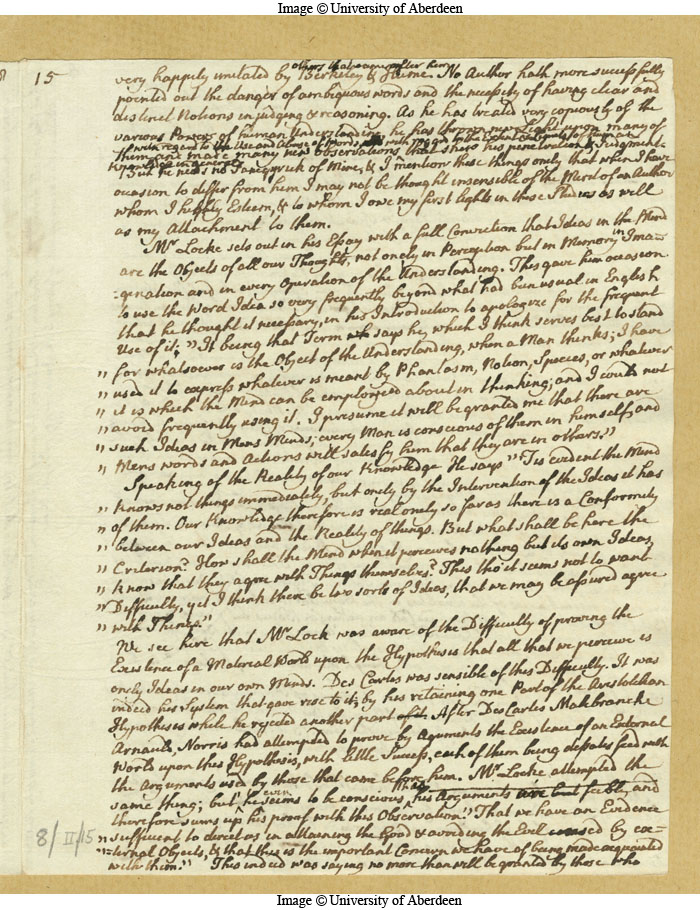 Image © University of Aberdeen
15
others that came after him
very happily imitated by Berkeley & Hume. No Author hath more successfully
pointed out the danger of ambiguous words and the necessity of having clear and
distinct Notions in judging & reasoning. As he has treated very copiously of the
various Powers of human Understanding, he has thrown new Light upon many of
with regard to the Use and abuse of Words, with regard to the Extent & Limits of human
them and made many new observations that shews his penetration & judgment.
Knowledge in general
But he needs no Panegyrick of Mine, & I mention these things only that when I have
occasion to differ from him I may not be thought insensible of the Merit of an Author
whom I highly Esteem, & to whom I owe my first lights in these Studies as well
as my Attachment to them.
Mr Locke sets out in his Essay with a full Conviction that Ideas in the Mind
are the Objects of all our Thoughts, not onely in Perception but in Memory in Ima-
-gination and in every Operation of the Understanding. This gave him occasion
to use the Word Idea so very frequently beyond what had bun usual in English
that he thought it necessary, in his Introduction to apologize for the frequent
Use of it; " It being that Term says he, which I think serves best to stand
" for whatsoever is the Object of the Understanding, when a Man thinks; I have
" used it to express whatever is meant by Phantasm, Notion, Species, or whatever
" it is which the Mind can be employed about in thinking; and I could not
" avoid frequently using it. I presume it will be granted me that there are
" such Ideas in Mens Minds; every Man is conscious of them in himself, and
" Mens words and Actions will satisfy him that they are in others."
Speaking of the Reality of our Knowledge He says " 'Tis evident the Mind
" knows not things immediately, but only by the Intervention of the Ideas it has
" of them. Our Knowledge therefore is real onely so far as there is a Conformity
" between our Ideas and the Reality of things. But what shall be here the
" Criterion? How shall the Mind when it perceives nothing but its own Ideas,
" know that they agree with Things themselves? This tho' it seems not to want
" Difficulty, yet I think there be two sorts of Ideas, that we may be assured agree
" with Things."
We see here that Mr Lock was aware of the Difficulty of proving the
Existence of a Material World upon the Hypothesis that all that we perceive is
onely Ideas in our own Minds. Des Cartes was sensible of this Difficulty. It was
indeed his System that gave rise to it; by his retaining one Part of the Aristotelian
Hypothesis while he rejected another part of it. After Des Cartes Malebranche
Arnauld, Norris had attempted to prove by Arguments the Existence of an External
World upon this Hypothesis, with little Success, each of them being dissatisfied with
the Arguments used by those that came before him. Mr Locke attempted the
same thing; but he even seems to be conscious that his Arguments are but feeble, and
therefore sums up his proof with this Observation "That we have an Evidence
" sufficient to direct us in attaining the Good & avoiding the Evil caused by ex-
"-ternal Objects, & that this is the important Concern we have of being made acquainted
with them." This indeed was saying no more than will be granted by those who
8/II/15
Image © University of Aberdeen